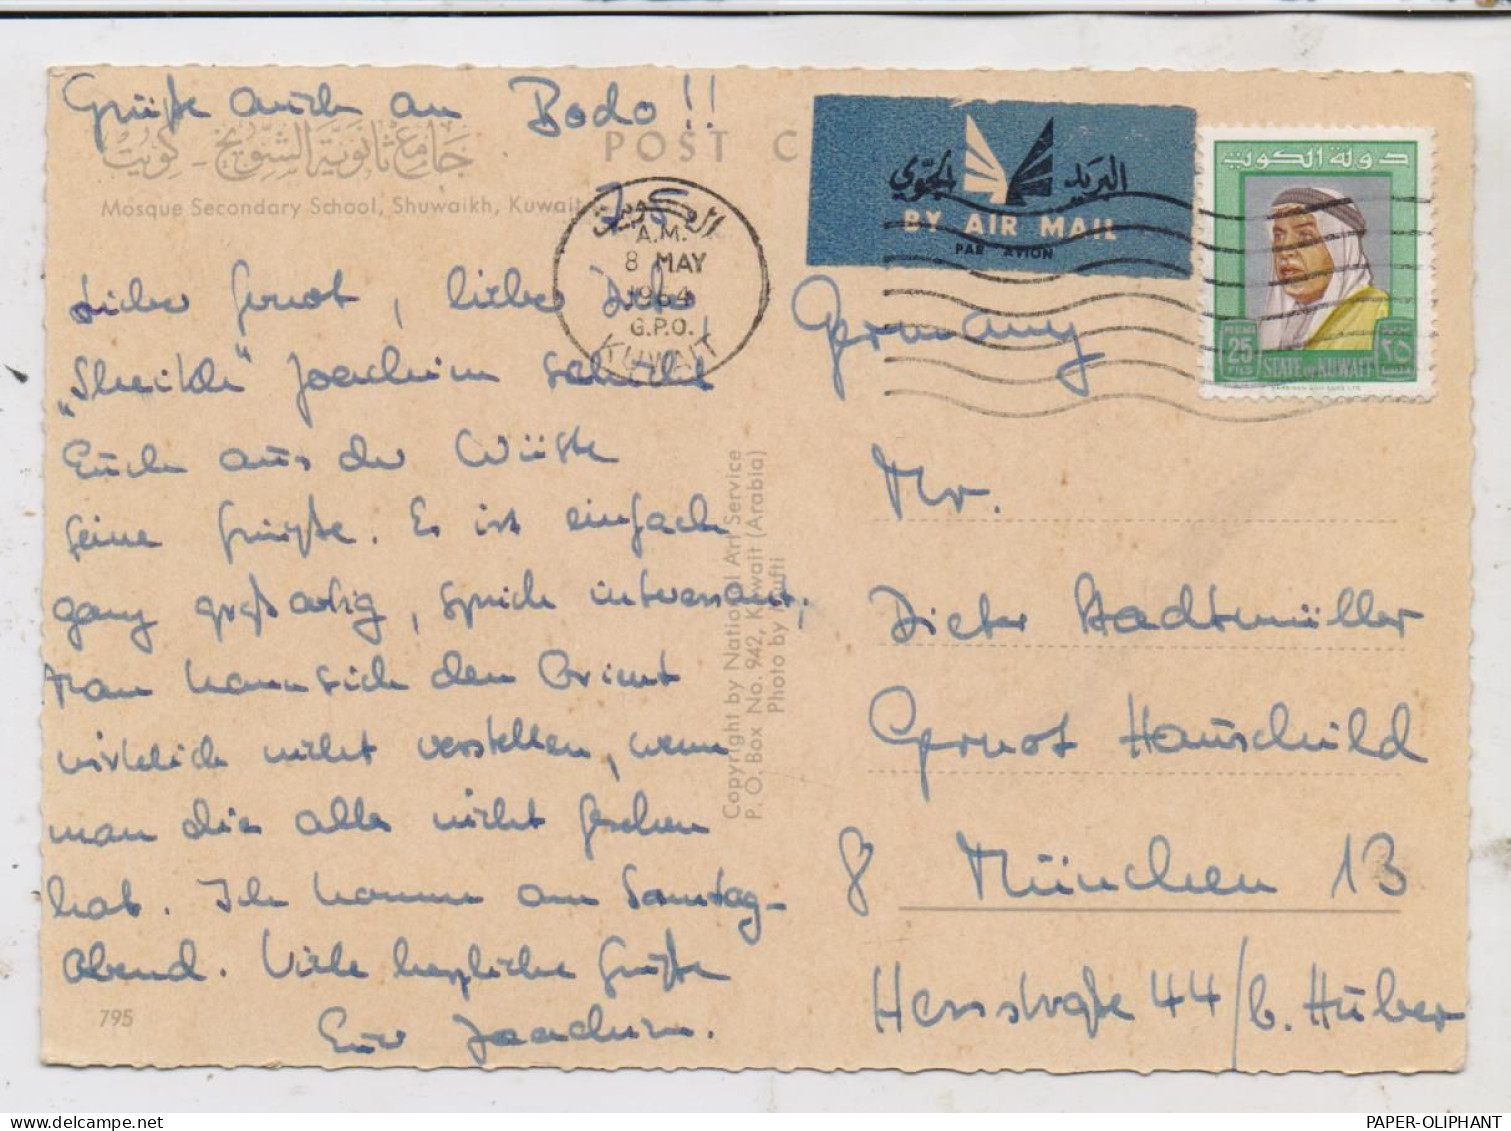 Grüße auch an Bodo!!
جامع ثانوية الشويخ - كويت
Mosque Secondary School, Shuwaikh, Kuwait
POST C
7.5.
Lieber Gernot, lieber Dieter!
„Sheikh" Joachim schickt
Euch aus der Wüste
seine Grüße. Es ist einfach
ganz großartig, sprich interessant;
man kann sich den Orient
wirklich nicht vorstellen, wenn
man dies alles nicht gesehen
hat. Ich komme am Samstag-
Abend. Viele herzliche Grüße
Euer Joachim.
795
Copyright by National Art Service
P. O. Box No. 942, Kuwait (Arabia)
Photo by Mufti
الكويت
A.M.
8 MAY
1964
G.P.O.
KUWAIT
البريد الجوي
BY AIR MAIL
PAR AVION
دولة الكويت
25
FILS
STATE OF KUWAIT
٢٥
HARRISON AND SONS LTD
Germany
Mr.
Dieter Stadtmüller
Gernot Hauschild
8 München 13
Hessstraße 44/b. Huber
PAPER-OLIPHANT